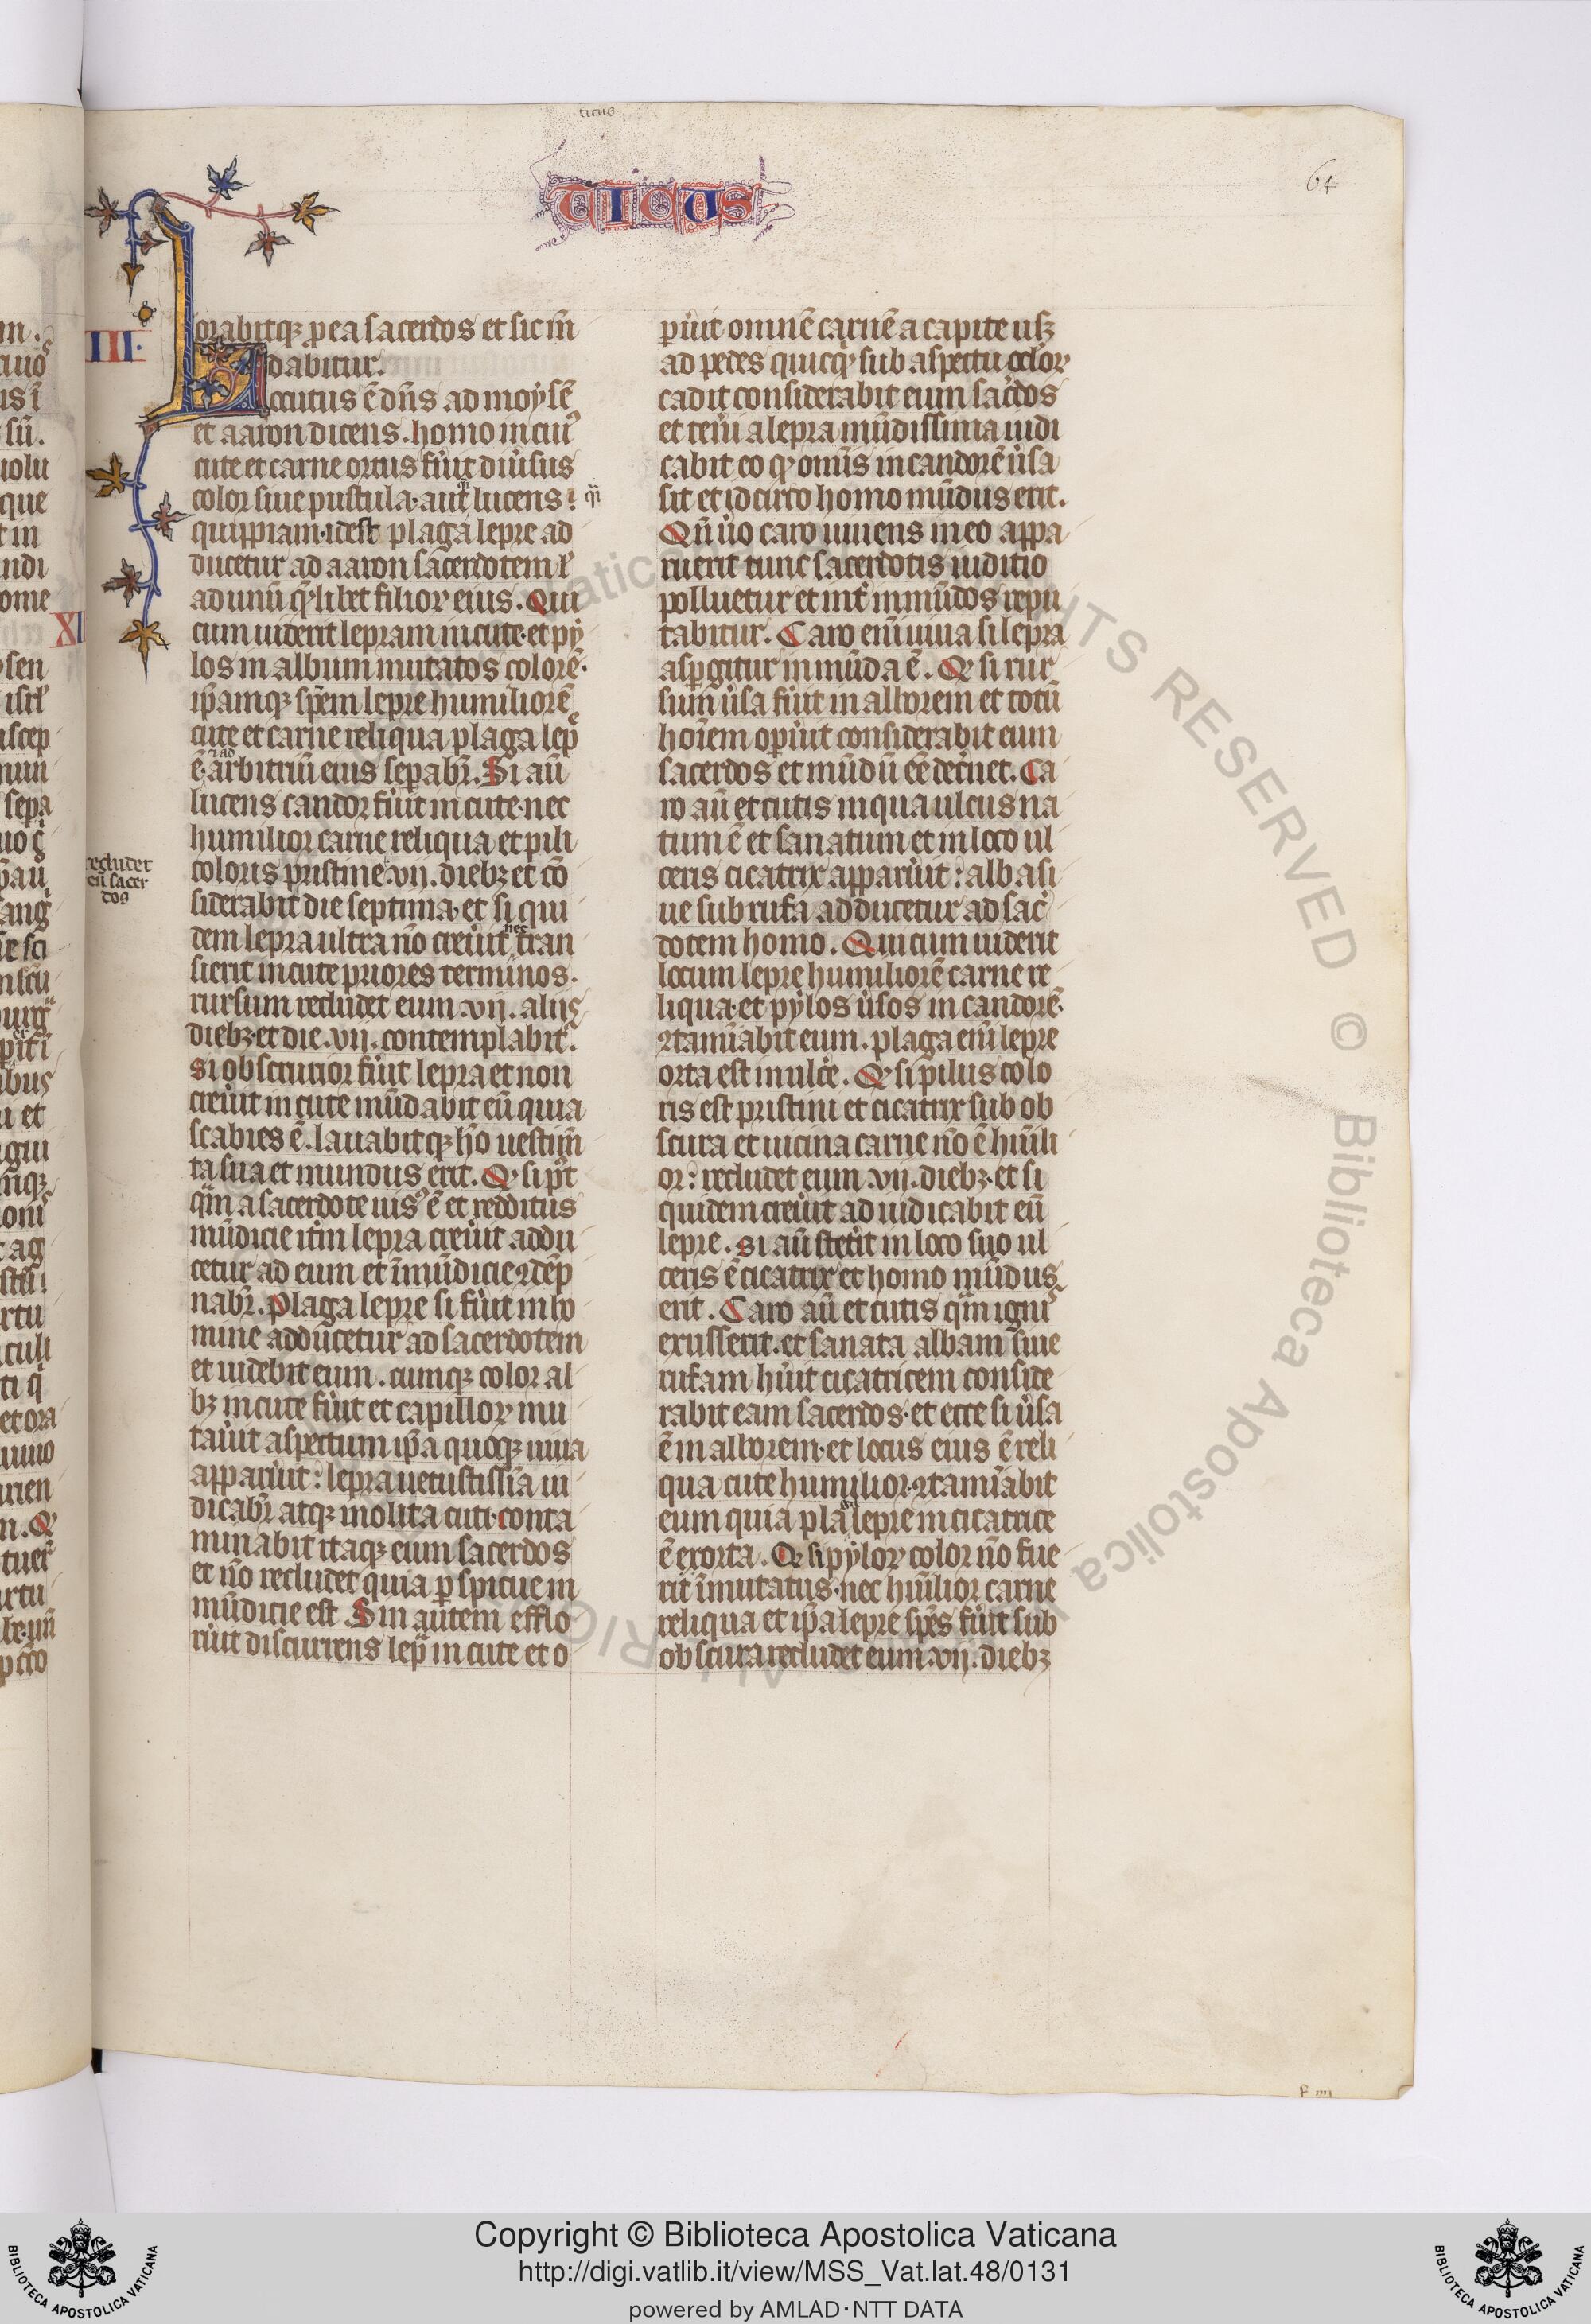 ticus
TICUS
64
III.
orabitqꝫ ꝓ ea sacerdos et sic mū
dabitur.
Locutus ē dn̄s ad moysē
et aaron dicens. homo in cuiꝰ
cute et carne ortus fu̾it diu̾sus
color siue pustula. aut lucens qͥ
quippiam. idest plaga lepre ad
ducetur ad aaron sacerdotem ł
ad unū qͥlibet filioꝝ eius. Qui
cum uiderit lepram in cute. et py
los in album mutatos colorē.
ip̄amqꝫ sp̄em lepre humiliorē
cute et carne reliqua plaga lep̄
ē. ꝛ ad arbitriū eius sep̲abr̄. Si aū
lucens candor fu̾it in cute. nec
humilior carne reliqua et pili
coloris pristini. recludet eū sacerdos .vij. diebꝫ et cō
siderabit die septima. et si qui
dem lepra ultra nō creu̾it nec tran
sierit in cute priores terminos.
rursum recludet eum .vij. aliis
diebꝫ. et die .vij. contemplabit᷑.
si obscurior fu̾it lepra et non
creu̾it in cute mūdabit eū quia
scabies ē. lauabitqꝫ hō uestim̄
ta sua et mundus erit. Qͥ si pꝰt
qᷓm a sacerdote uisꝰ ē et redditus
mūdicie itm̄ lepra creu̾it addu
cetur ad eum et īmūdicie ꝯdēp
nabr̄. Plaga lepre si fu̾it in ho
mine adducetur ad sacerdotem
et uidebit eum. cumqꝫ color al
bꝫ in cute fu̾it et capilloꝝ mu
tau̾it aspectum ip̄a quoqꝫ uiua
apparu̾it: lepra uetustissīa iu
dicabr̄ atqꝫ inolita cuti. conta
minabit itaqꝫ eum sacerdos
et nō recludet quia ꝑspicue in
mūdicie est. Sin autem efflo
ru̾it discurrens lepᷓ in cute et o
ꝑu̾it omnē carnē a capite usqꝫ
ad pedes quicqͥ sub aspectu oc̄loꝝ
cadit considerabit eum sac̾dos
et teneri a lepra mūdissima iudi
cabit eo qͥ omīs in candorē u̾sa
sit et idcirco homo mūdus erit.
Qn̄ uo caro uiuens in eo appa
ruerit tunc sacerdotis iuditio
polluetur et int̾ inmūdos repu
tabitur. Caro enī uiua si lepra
asꝑgitur inmūda ē. Qͥ si rur
sum u̾sa fu̾it in alborem et totū
hoīem oꝑu̾it considerabit eum
sacerdos et mūdū eē dec̾net. Ca
ro aū et cutis in qua ulcus na
tum ē et sanatum et in loco ul
ceris cicatrix apparu̾it: alba si
ue subrufa adducetur ad sac̾
dotem homo. Qui cum uiderit
locum lepre humiliorē carne re
liqua. et pylos u̾sos in candorē.
ꝯtamīabit eum. plaga enī lepre
orta est in ulc̾e. Qͥ si pilus colo
ris est pristini et cicatrix sub ob
scura et uicina carne nō ē hūili
or: recludet eum .vij. diebꝫ. et si
quidem creu̾it adiudicabit eū
lepre. si aū stet̾it in loco suo ul
ceris ē cicatrix et homo mūdus
erit. Caro aū et cutis qᷓm ignis
exusserit. et sanata albam siue
rufam hu̾it cicatricem conside
rabit eam sacerdos. et ecce si u̾sa
ē in alborem. et locus eius ē reli
qua cute humilior. ꝯtamīabit
eum quia plaga lepre in cicatrice
ē exorta. Qͥ si pyloꝝ color nō fue
rit īmutatus. nec hūilior carne
reliqua et ip̄a lepre sp̄es fu̾it sub
obscura recludet eum .vij. diebꝫ
Copyright © Biblioteca Apostolica Vaticana
http://digi.vatlib.it/view/MSS_Vat.lat.48/0131
powered by AMLAD·NTT DATA
BIBLIOTECA APOSTOLICA VATICANA
BIBLIOTECA APOSTOLICA VATICANA